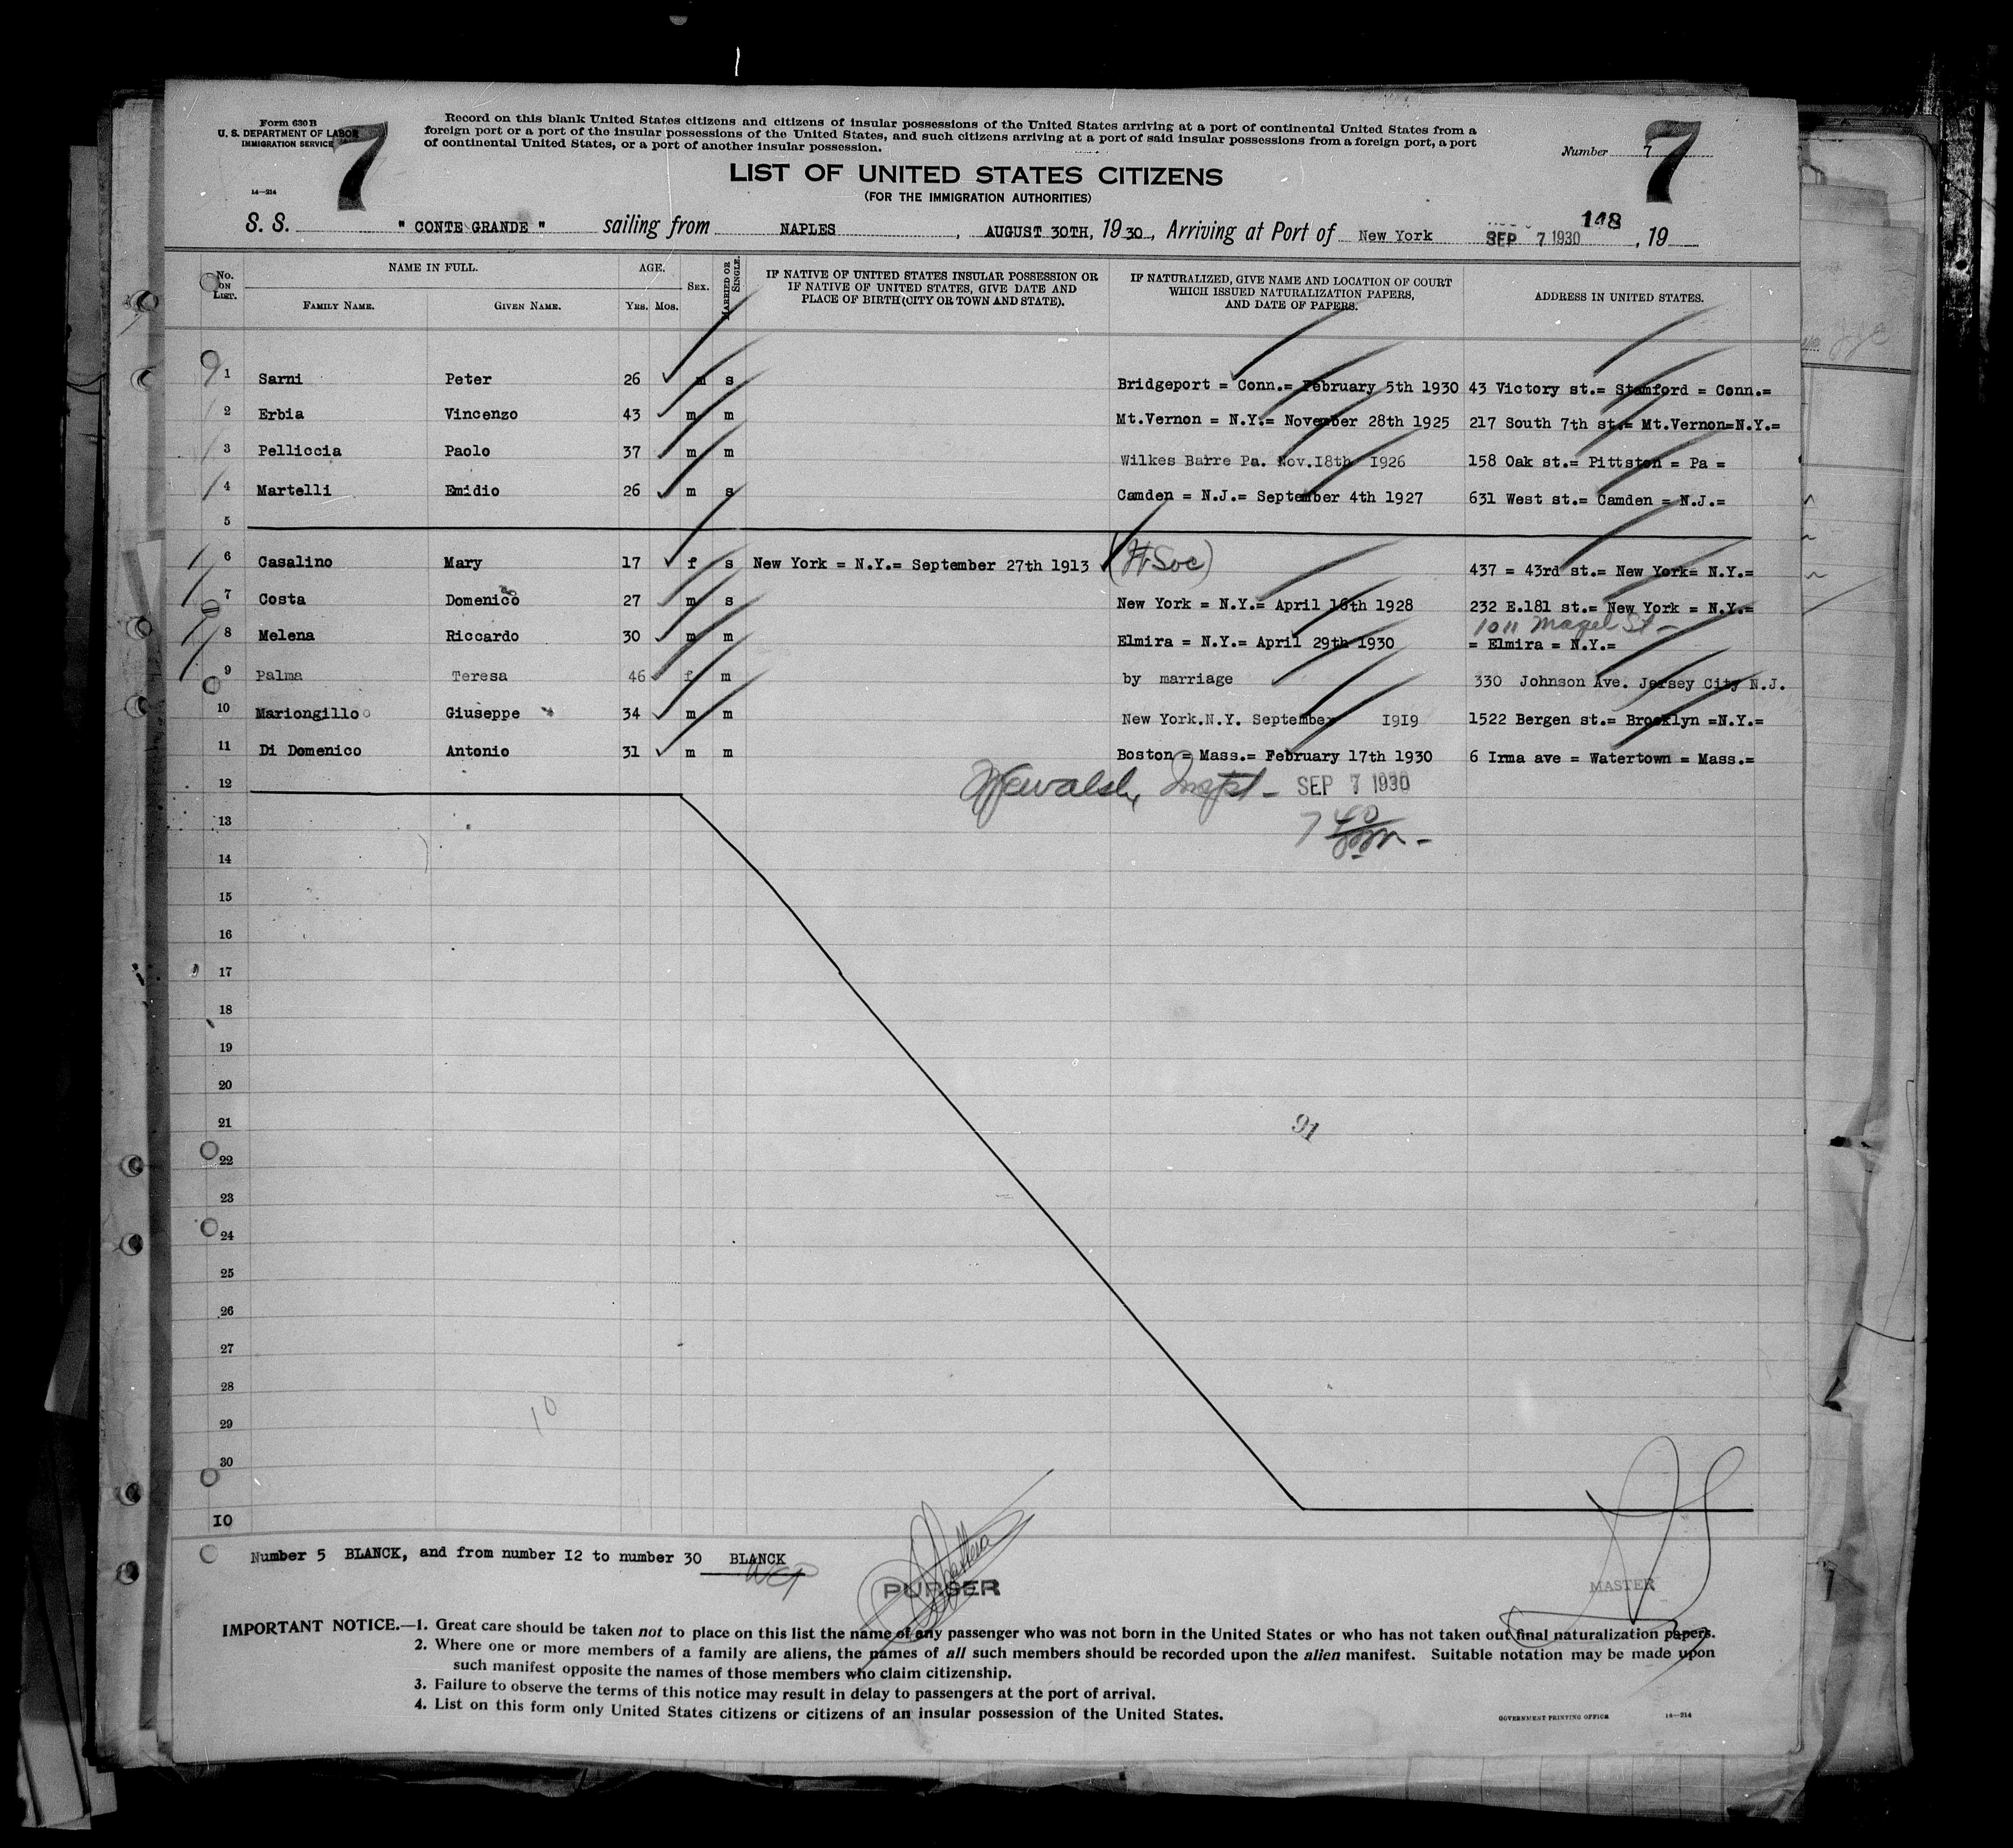 Form 630 B
U. S. DEPARTMENT OF LABOR
IMMIGRATION SERVICE
14—214
7
Record on this blank United States citizens and citizens of insular possessions of the United States arriving at a port of continental United States from a
foreign port or a port of the insular possessions of the United States, and such citizens arriving at a port of said insular possessions from a foreign port, a port
of continental United States, or a port of another insular possession.
Number 7
7
LIST OF UNITED STATES CITIZENS
(FOR THE IMMIGRATION AUTHORITIES)
148
S. S. " CONTE GRANDE " sailing from NAPLES, AUGUST 30TH, 1930, Arriving at Port of New York SEP 7 1930, 19
No. ON LIST. NAME IN FULL. AGE. SEX. MARRIED OR SINGLE. IF NATIVE OF UNITED STATES INSULAR POSSESSION OR IF NATIVE OF UNITED STATES, GIVE DATE AND PLACE OF BIRTH (CITY OR TOWN AND STATE). IF NATURALIZED, GIVE NAME AND LOCATION OF COURT WHICH ISSUED NATURALIZATION PAPERS, AND DATE OF PAPERS. ADDRESS IN UNITED STATES.
FAMILY NAME. GIVEN NAME. YRS. MOS.
1 Sarni Peter 26 m s Bridgeport = Conn.= February 5th 1930 43 Victory st.= Stamford = Conn.=
2 Erbia Vincenzo 43 m m Mt.Vernon = N.Y.= November 28th 1925 217 South 7th st.= Mt.Vernon=N.Y.=
3 Pelliccia Paolo 37 m m Wilkes Barre Pa. Nov.I8th I926 158 Oak st.= Pittston = Pa =
4 Martelli Emidio 26 m s Camden = N.J.= September 4th 1927 631 West st.= Camden = N.J.=
5
6 Casalino Mary 17 f s New York = N.Y.= September 27th 1913 437 = 43rd st.= New York= N.Y.=
7 Costa Domenico 27 m s New York = N.Y.= April 16th 1928 232 E.181 st.= New York = N.Y.=
1011 Magel St -
8 Melena Riccardo 30 m m Elmira = N.Y.= April 29th 1930 = Elmira = N.Y.=
9 Palma Teresa 46 f m by marriage 330 Johnson Ave. Jersey City N.J.
10 Mariongillo Giuseppe 34 m m New York.N.Y. September I9I9 1522 Bergen st.= Brooklyn =N.Y.=
11 Di Domenico Antonio 31 m m Boston = Mass.= February 17th 1930 6 Irma ave = Watertown = Mass.=
12 SEP 7 1930
13
14
15
16
17
18
19
20
21
91
22
23
24
25
26
27
28
10
29
30
IO
Number 5 BLANCK, and from number I2 to number 30 BLANCK
PURSER
MASTER
IMPORTANT NOTICE.—1. Great care should be taken not to place on this list the name of any passenger who was not born in the United States or who has not taken out final naturalization papers.
2. Where one or more members of a family are aliens, the names of all such members should be recorded upon the alien manifest. Suitable notation may be made upon
such manifest opposite the names of those members who claim citizenship.
3. Failure to observe the terms of this notice may result in delay to passengers at the port of arrival.
4. List on this form only United States citizens or citizens of an insular possession of the United States.
GOVERNMENT PRINTING OFFICE 14—214